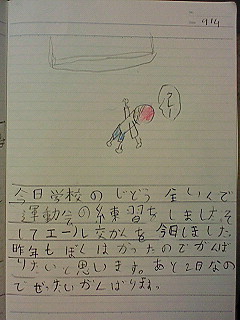 9/14
アヒー
今日学校の じどう 全いんで
運動会の練習をしました。そ
してエール交かんを今日しました
昨年もぼくはかったのでがんば
りたいと思います。あと2日なの
でぜったいがんばります。